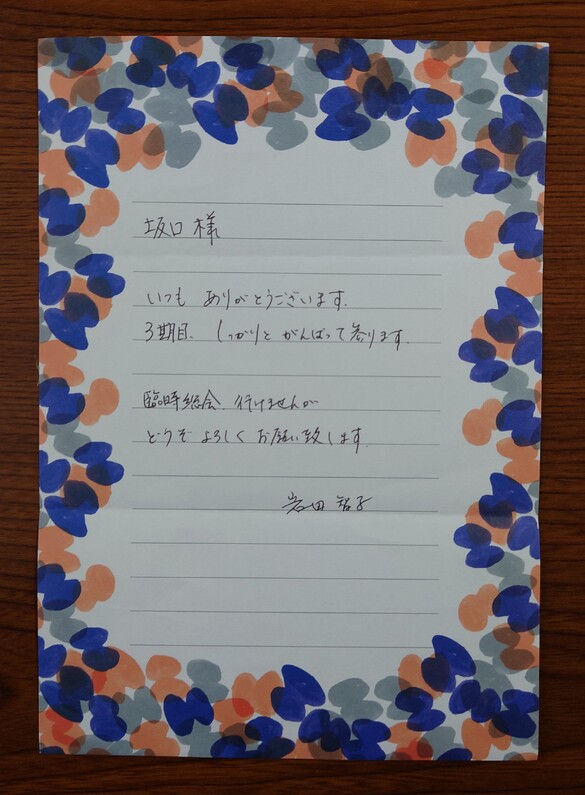 坂口 様
いつも ありがとうございます.
3期目、しっかりと がんばって参ります.
臨時総会、行けませんが
どうぞ よろしく お願い致します.
岩田 智子